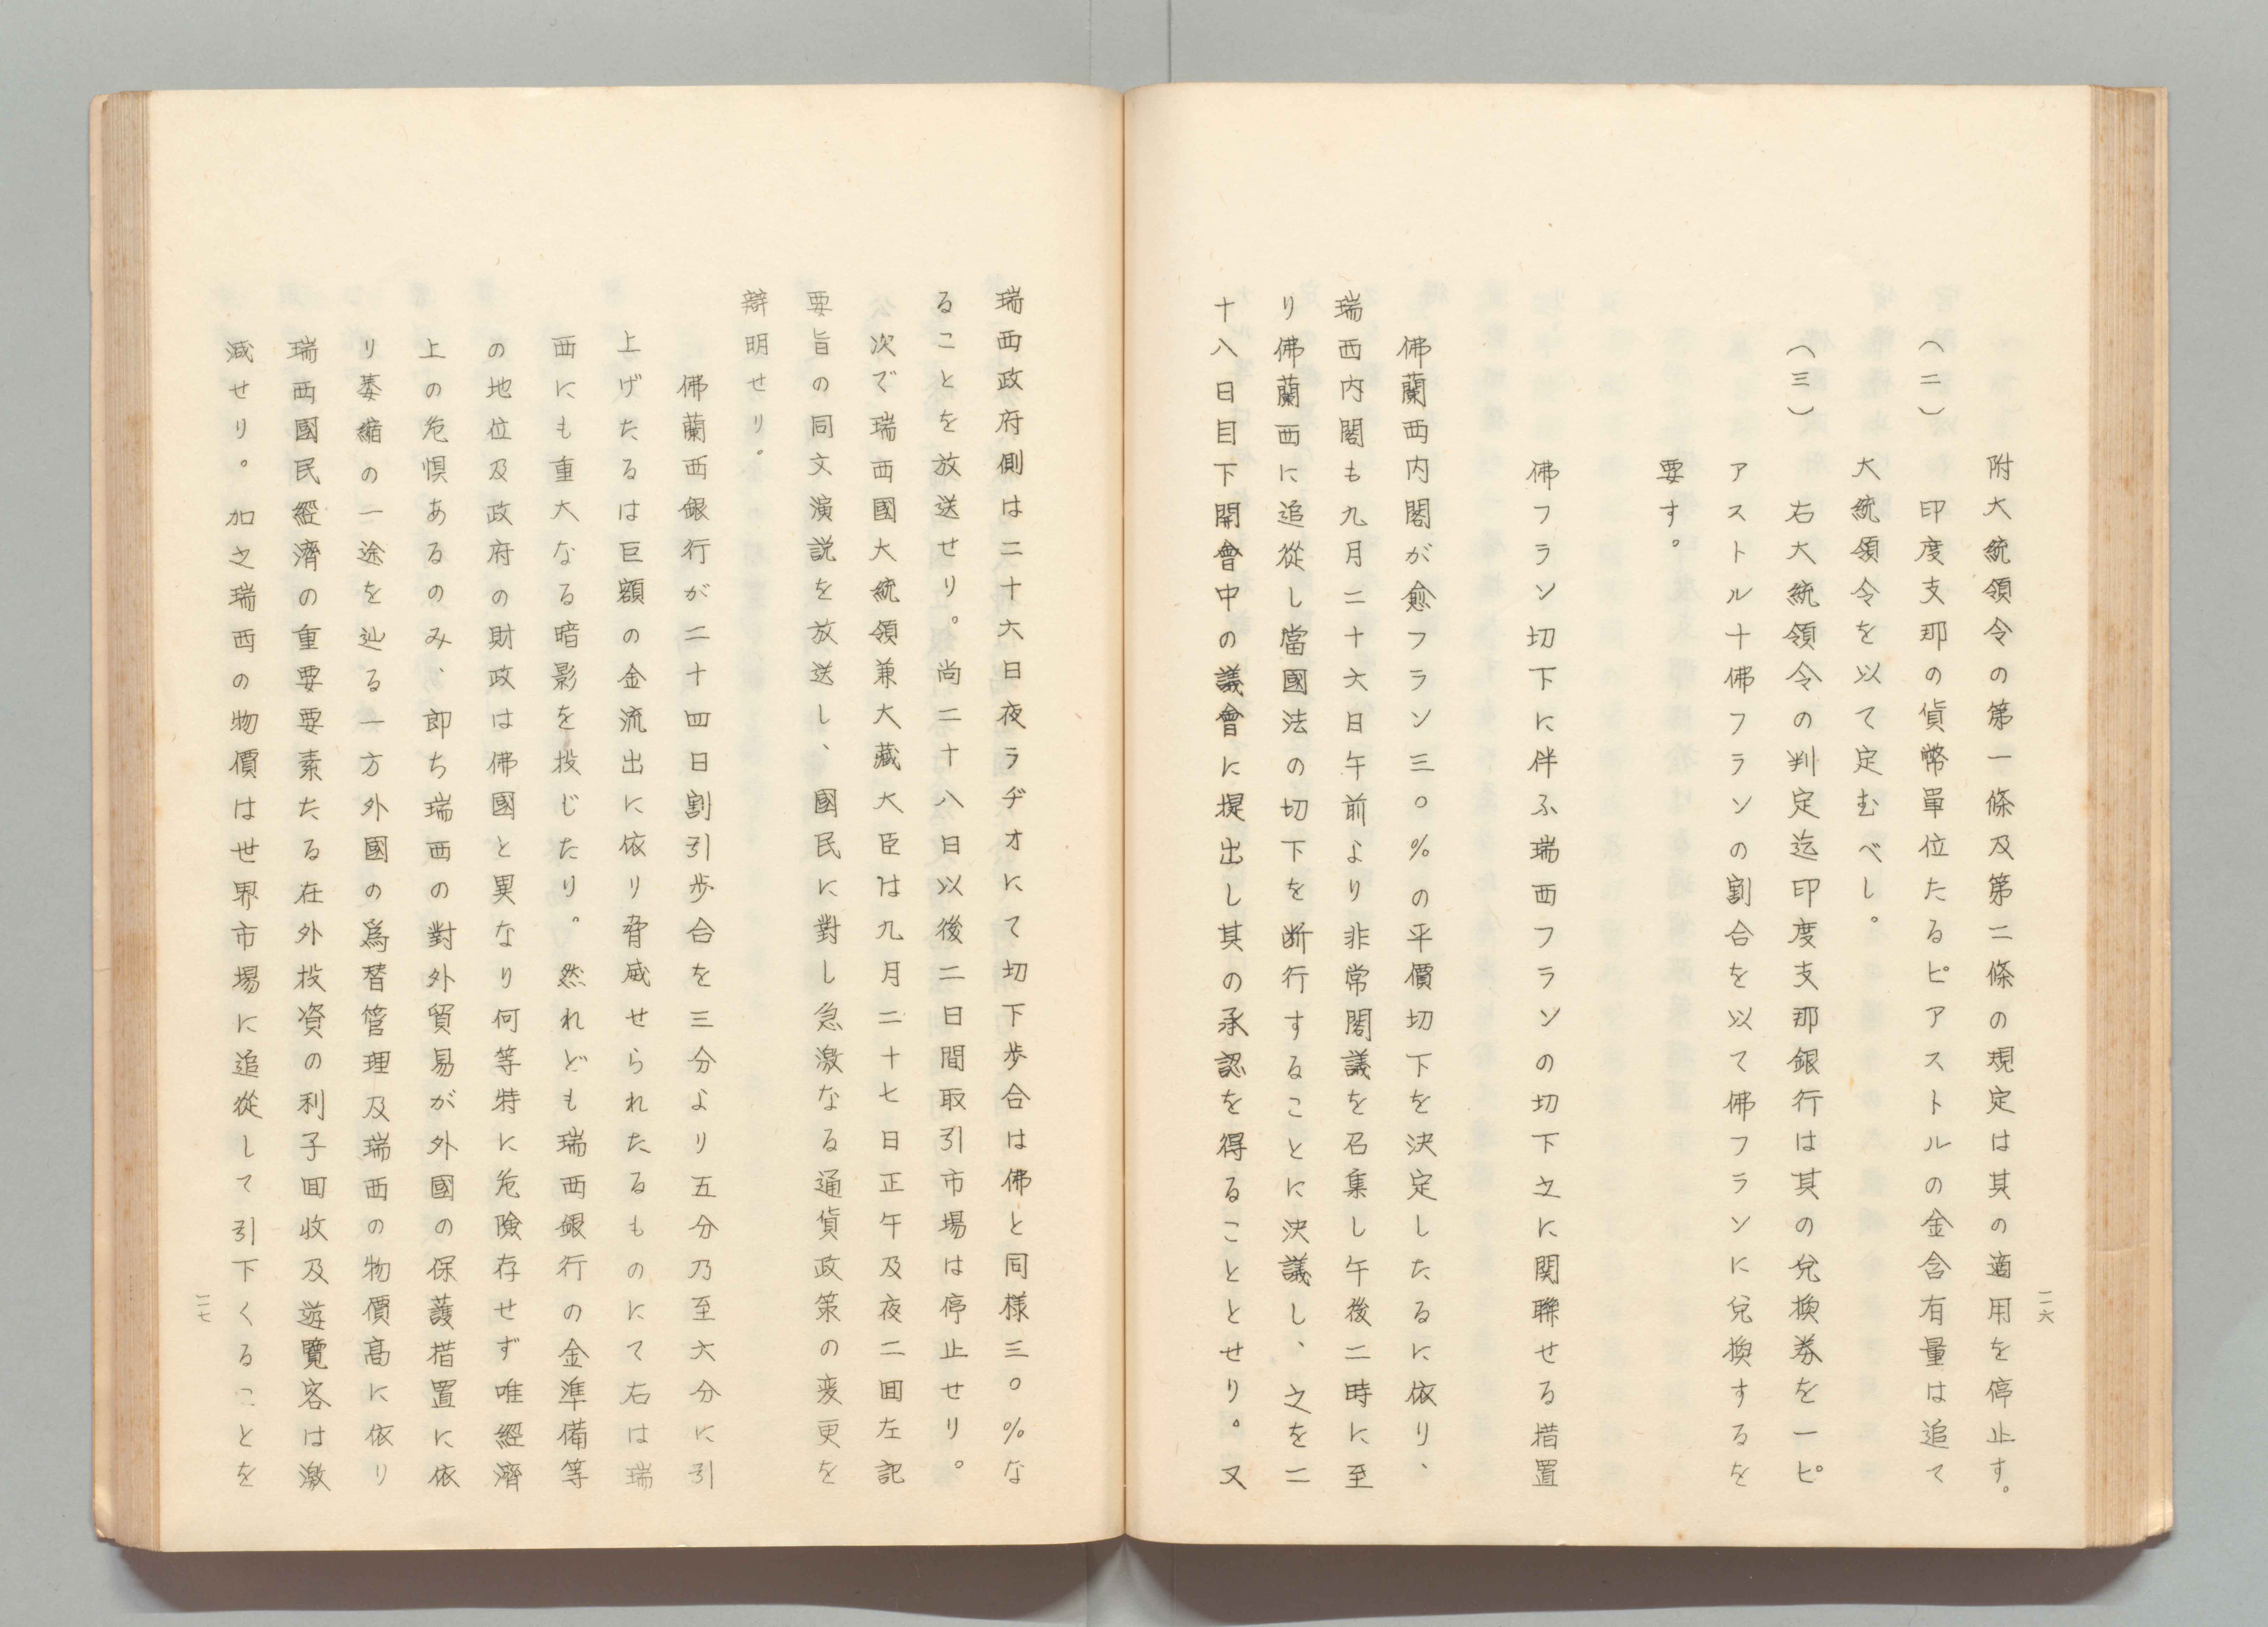 附大統領令の第一條及第二條の規定は其の適用を停止す。
(二) 印度支那の貨幣單位たるピアストルの金含有量は追て
大統領令を以て定むべし。
(三) 右大統領令の判定迄印度支那銀行は其の兌換券を一ピ
アストル十佛フランの割合を以て佛フランに兌換するを
要す。
佛フラン切下に伴ふ瑞西フランの切下之に関聯せる措置
佛蘭西内閣が愈フラン三〇%の平價切下を決定したるに依り、
瑞西内閣も九月二十六日午前より非常閣議を召集し午後二時に至
り佛蘭西に追從し當國法の切下を断行することに決議し、之を二
十八日目下開會中の議會に提出し其の承認を得ることとせり。又
二六
瑞西政府側は二十六日夜ラヂオにて切下歩合は佛と同様三〇%な
ることを放送せり。尚二十八日以後二日間取引市場は停止せり。
次で瑞西國大統領兼大藏大臣は九月二十七日正午及夜二回左記
要旨の同文演説を放送し、國民に對し急激なる通貨政策の変更を
辯明せり。
佛蘭西銀行が二十四日割引歩合を三分より五分乃至六分に引
上げたるは巨額の金流出に依り脅威せられたるものにて右は瑞
西にも重大なる暗影を投じたり。然れども瑞西銀行の金準備等
の地位及政府の財政は佛國と異なり何等特に危險存せず唯經濟
上の危惧あるのみ、即ち瑞西の對外貿易が外國の保護措置に依
り萎縮の一途を辿る一方外國の爲替管理及瑞西の物價高に依り
瑞西國民經濟の重要要素たる在外投資の利子回收及遊覽客は激
減せり。加之瑞西の物價は世界市場に追從して引下くることを
二七